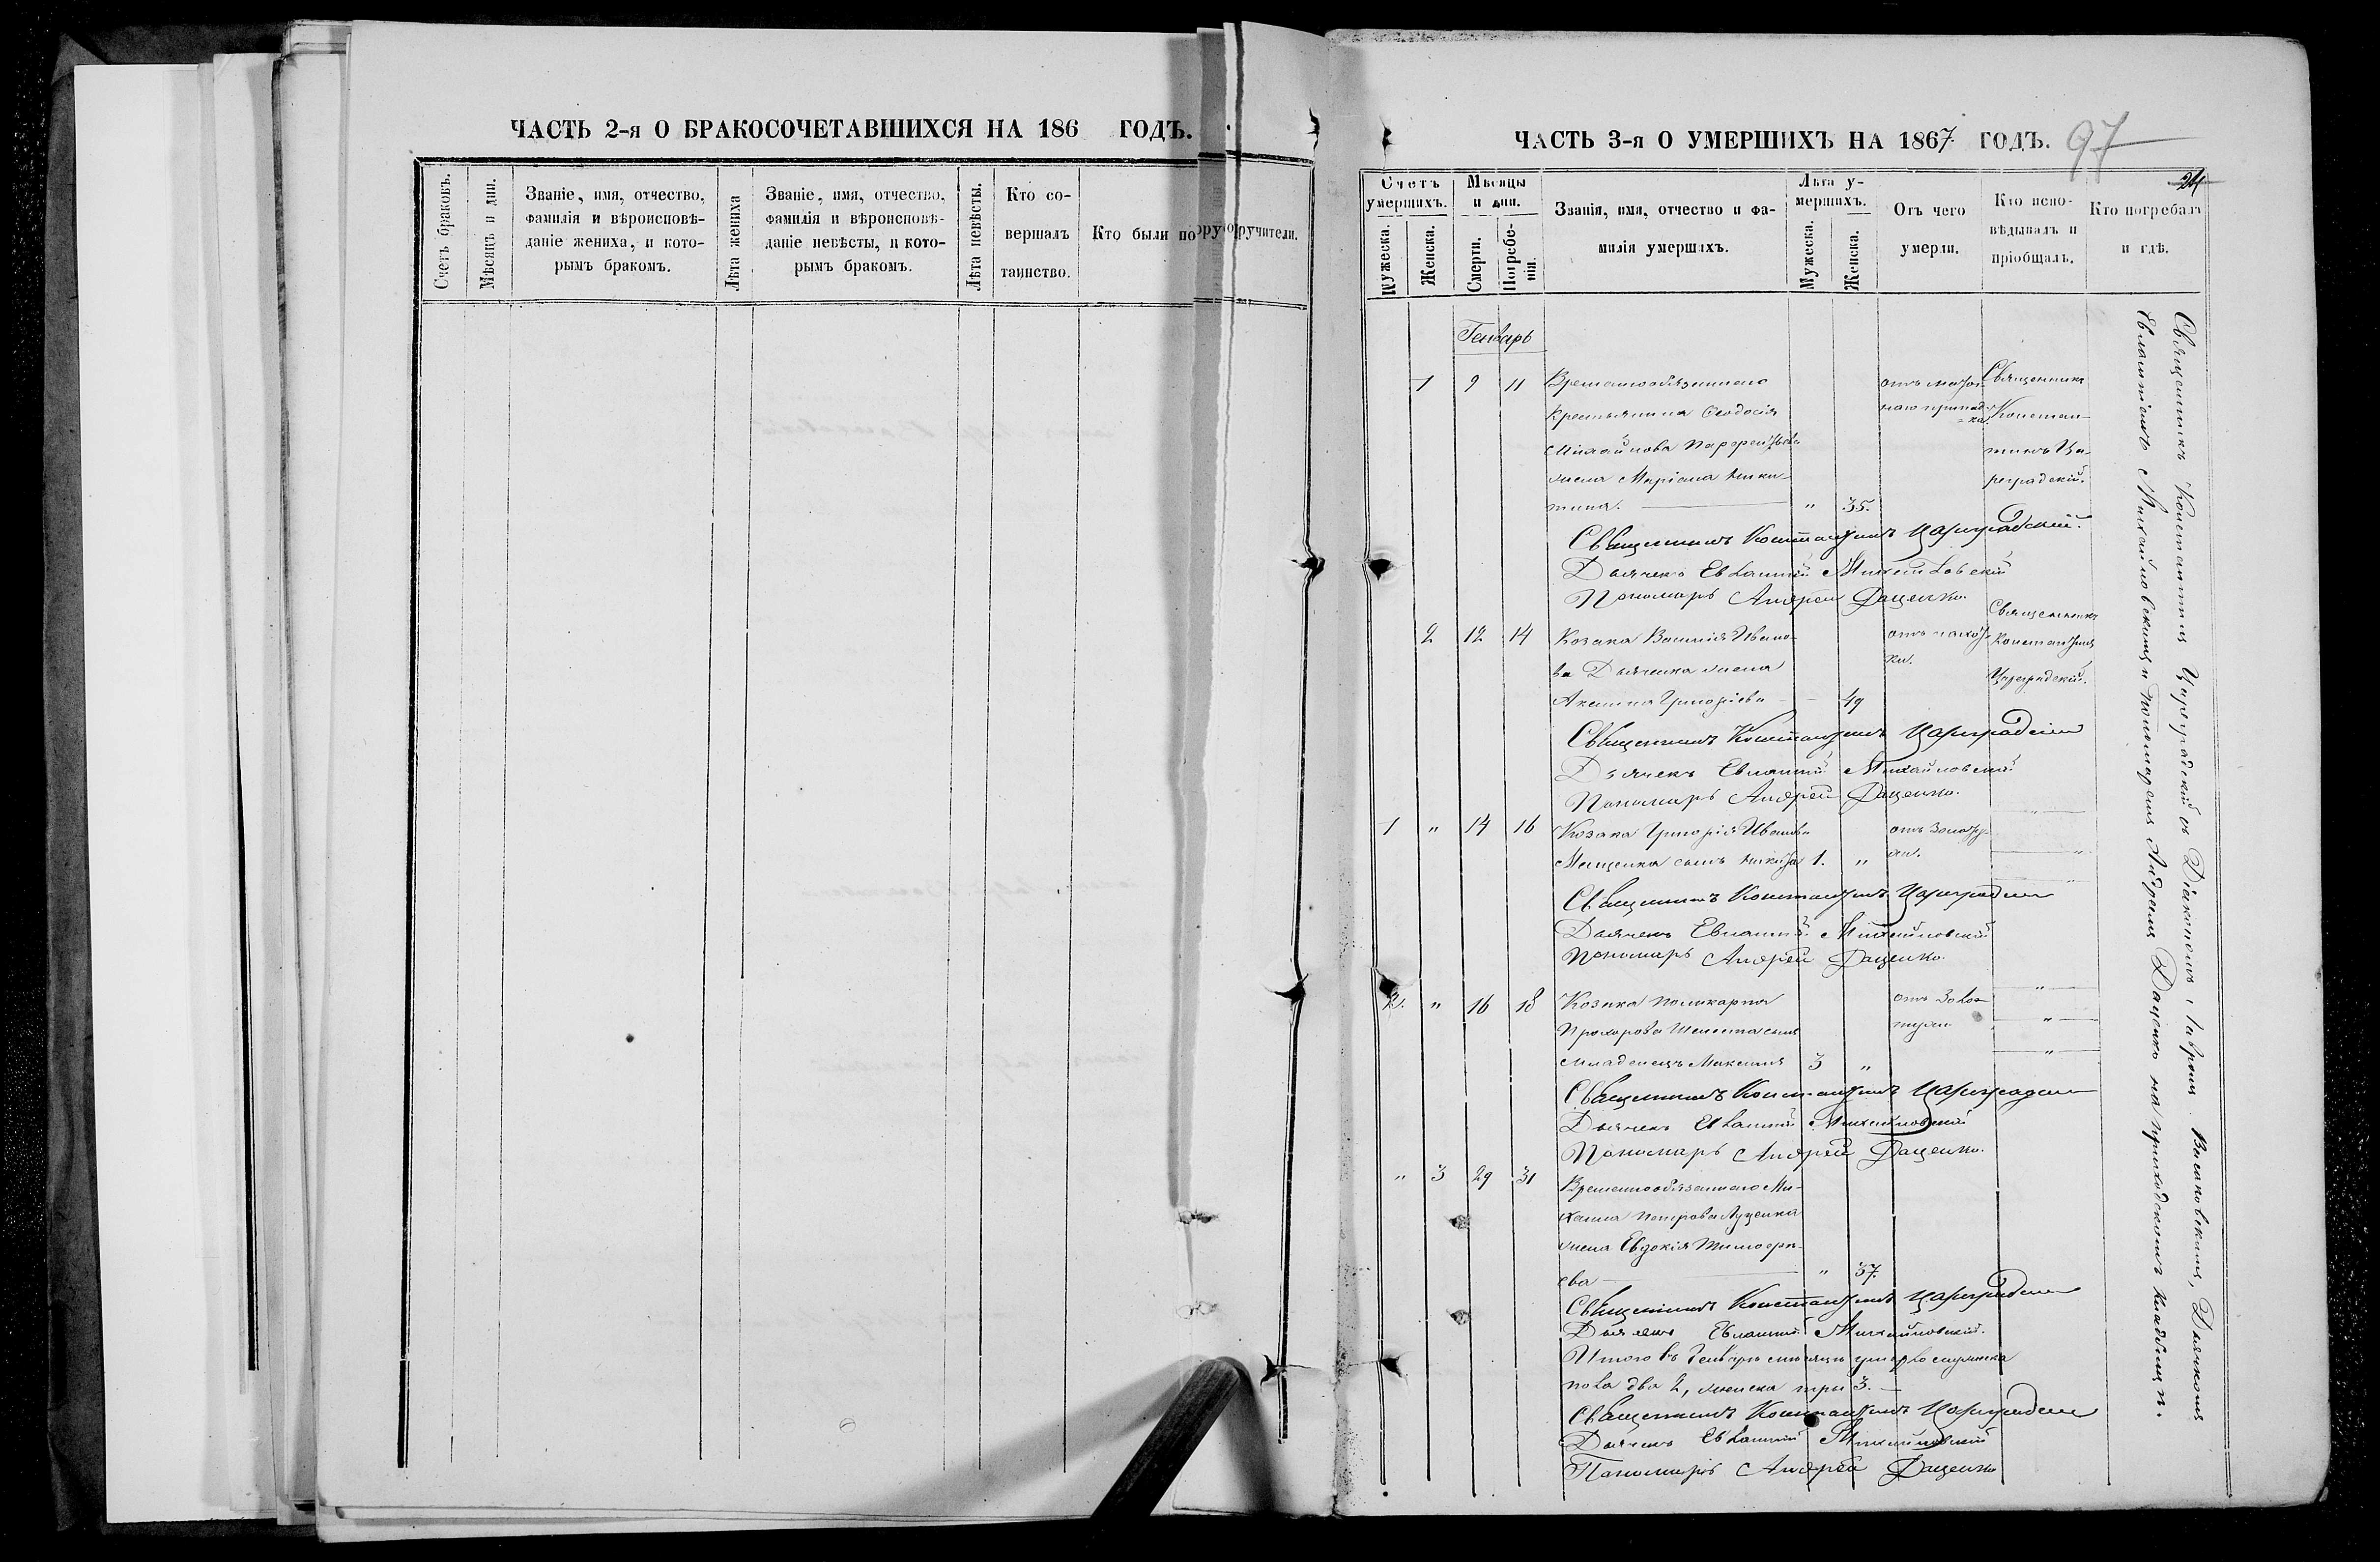 ЧАСТЬ 2-я О БРАКОСОЧЕТАВШИХСЯ НА 186 ГОДЪ.
Счетъ браковъ.
Мѣсяцъ и дни.
Званіе, имя, отчество,
фамилія и вѣроисповѣ-
даніе жениха, и кото-
рымъ бракомъ.
Лѣта жениха
Званіе, имя, отчество,
фамилія и вѣроисповѣ-
даніе невѣсты, и кото-
рымъ бракомъ.
Лѣта невѣсты.
Кто со-
вершалъ
таинство.
Кто были по
ручители.
ЧАСТЬ 3-я О УМЕРШИХЪ НА 1867 ГОДЪ.
97
24
Счетъ
умершихъ.
Мужеска.
Женска.
Мѣсяцы
и дни.
Смерти.
Погребе-
нія.
Званія, имя, отчество и фа-
милія умершихъ.
Лѣта у-
мершихъ.
Мужеска.
Женска.
Отъ чего
умерли.
Кто испо-
вѣдывалъ и
пріобщалъ.
Кто погребалъ
и гдѣ.
Генварь
1 9 11 Временнообязаннаго
Крестьянина Ѳеодосія
Михайлова
жена Маріана Ники-
тина. " 35.
Священникъ
Констан-
тинъ Ца-
реградскій.
Священникъ Константинъ Цареградскій.
Дьячекъ Евлампій Михайловскій
Пономарь Андрей Даценко.
2 12 14 Козака Василія Ивано-
ва Дьяченка жена
Акилина Григоріева 49
Священникъ
Константинъ
Цареградскій.
Священникъ Константинъ Цареградскій
Дьячекъ Евлампій Михайловскій
Пономарь Андрей Даценко.
1 " 14 16 Козака Григорія Иванова
Мащенка сынъ Никита 1. " отъ золоту-
хи.
Священникъ Константинъ Цареградскій
Дьячекъ Евлампій Михайловскій
Пономарь Андрей Даценко.
2. " 16 18 Козака Поликарпа
Прохорова Шелеста сынъ
младенецъ Максимъ 3 "
отъ золо-
тухи
Священникъ Константинъ Цареградскій
Дьячекъ Евлампій Михайловскій
Пономарь Андрей Даценко.
" 3 29 31 Временнообязаннаго Ми-
хаила Петрова Луценка
жена Евдокія Тимофе-
ева " 37.
Священникъ Константинъ Цареградскій
Дьячекъ Евлампій Михайловскій.
Итого въ Генварѣ мѣсяцѣ умерло мужеска
пола два 2, женска три 3.
Священникъ Константинъ Цареградскій
Дьячекъ Евлампій Михайловскій
Пономарь Андрей Даценко
Священникъ Константинъ Цареградскій съ Діакономъ Василовскимъ, Дьячкомъ
Евлампіемъ Михайловскимъ и Пономаремъ Андреемъ Даценко на приходскомъ кладбищѣ.